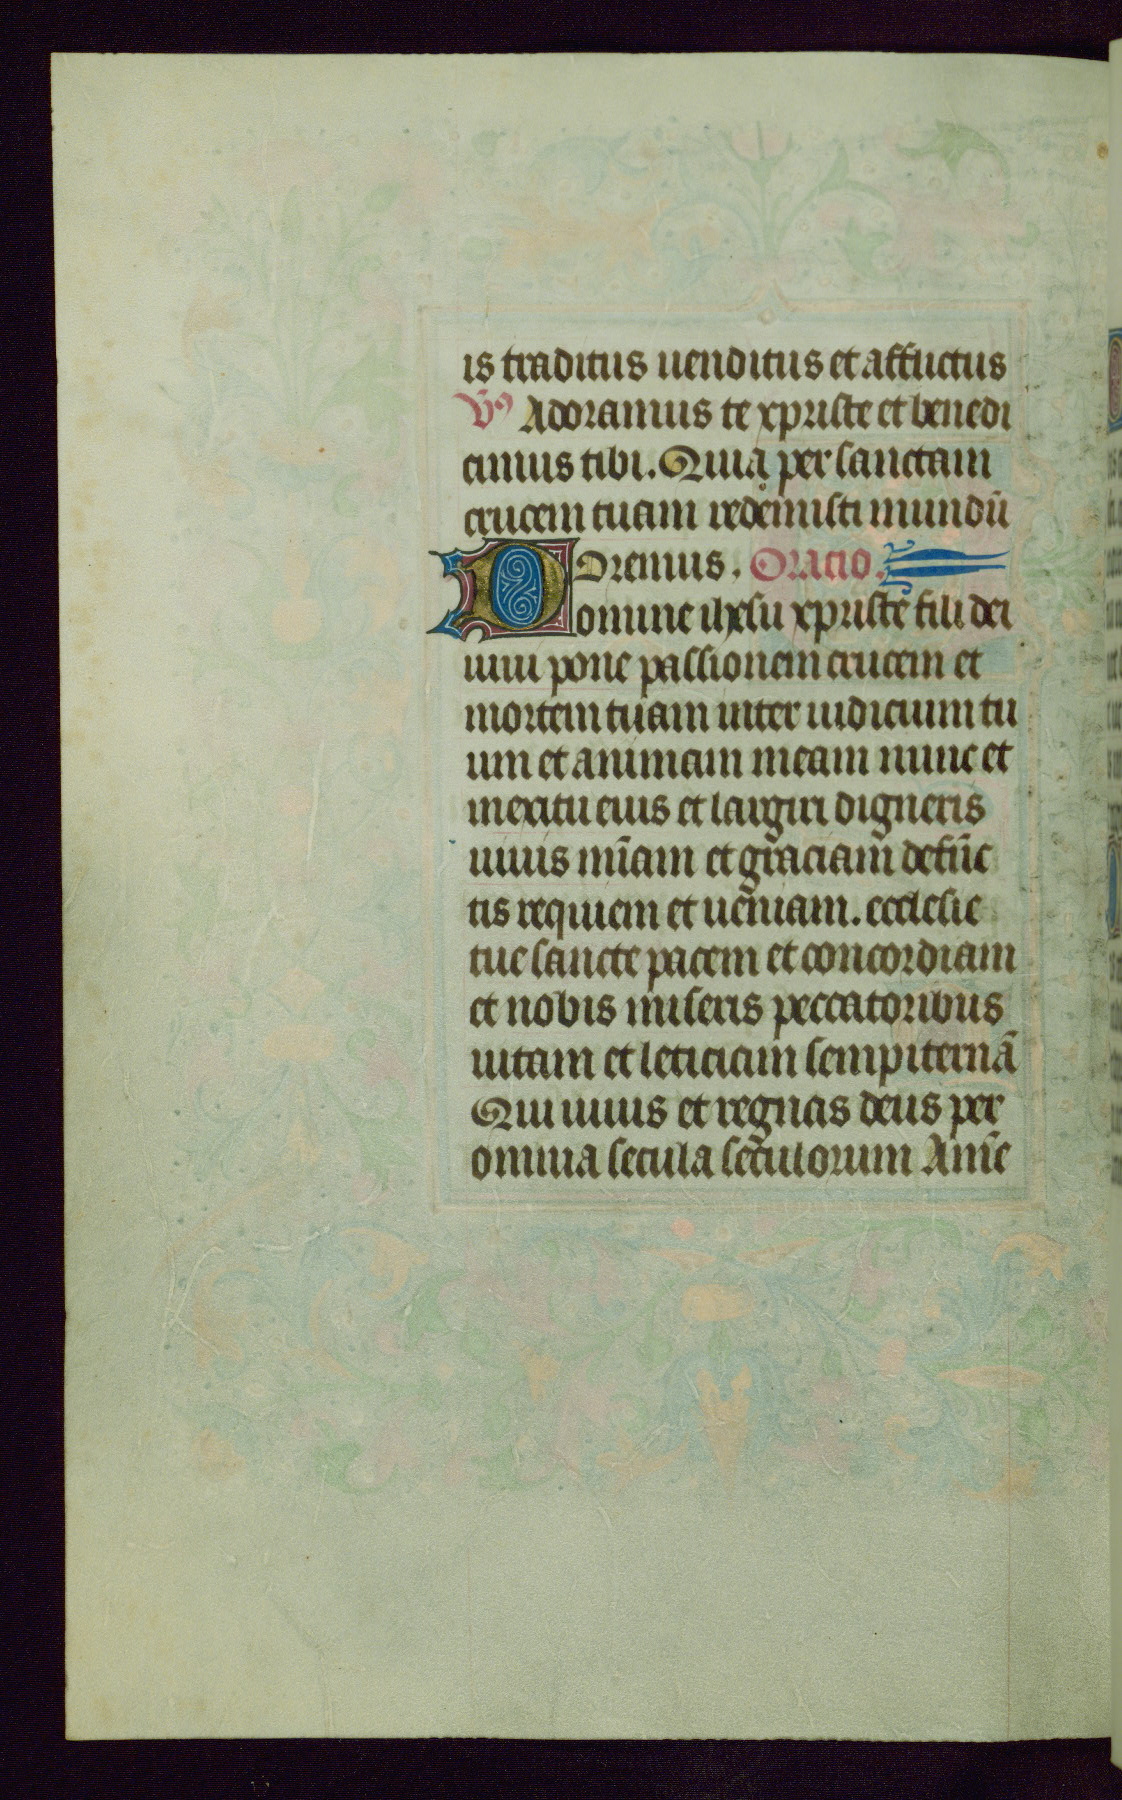 is traditus uenditus et afflictus
V̄9 Adoramus te xpriste et benedi
cimus tibi. Quia per sanctam
crucem tuam redemisti mundū
Oremus. Oracio.
Domine ihesu xpriste fili dei
uiui pone passionem crucem et
mortem tuam inter iudicium tu
um et animam meam nunc et
in exitu eius et largiri digneris
uiuis mīam et grāciam defūc
tis requiem et ueniam. ecclesie
tue sancte pacem et concordiam
et nobis miseris peccatoribus
uitam et leticiam sempiternā
Qui uiuis et regnas deus per
omnia secula seculorum Amē